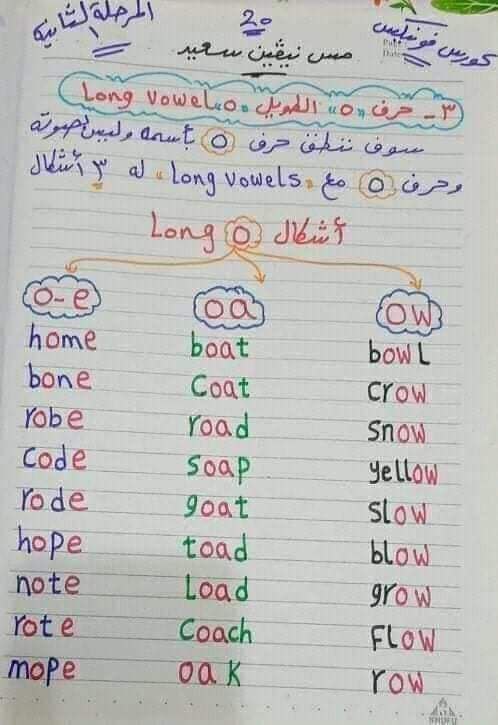 كورس فونكس
20
المرحلة الثانية
مس نيڤين سعيد
٣- حرف "o" الطويل "Long vowel "o
سوف ننطق حرف o بأسمه وليس بصوته
وحرف o مع "Long vowels" له ٣ أشكال
أشكال Long o
o-e oa ow
home boat bowl
bone coat crow
robe road snow
code soap yellow
rode goat slow
hope toad blow
note Load grow
rote Coach FLow
mope oak row